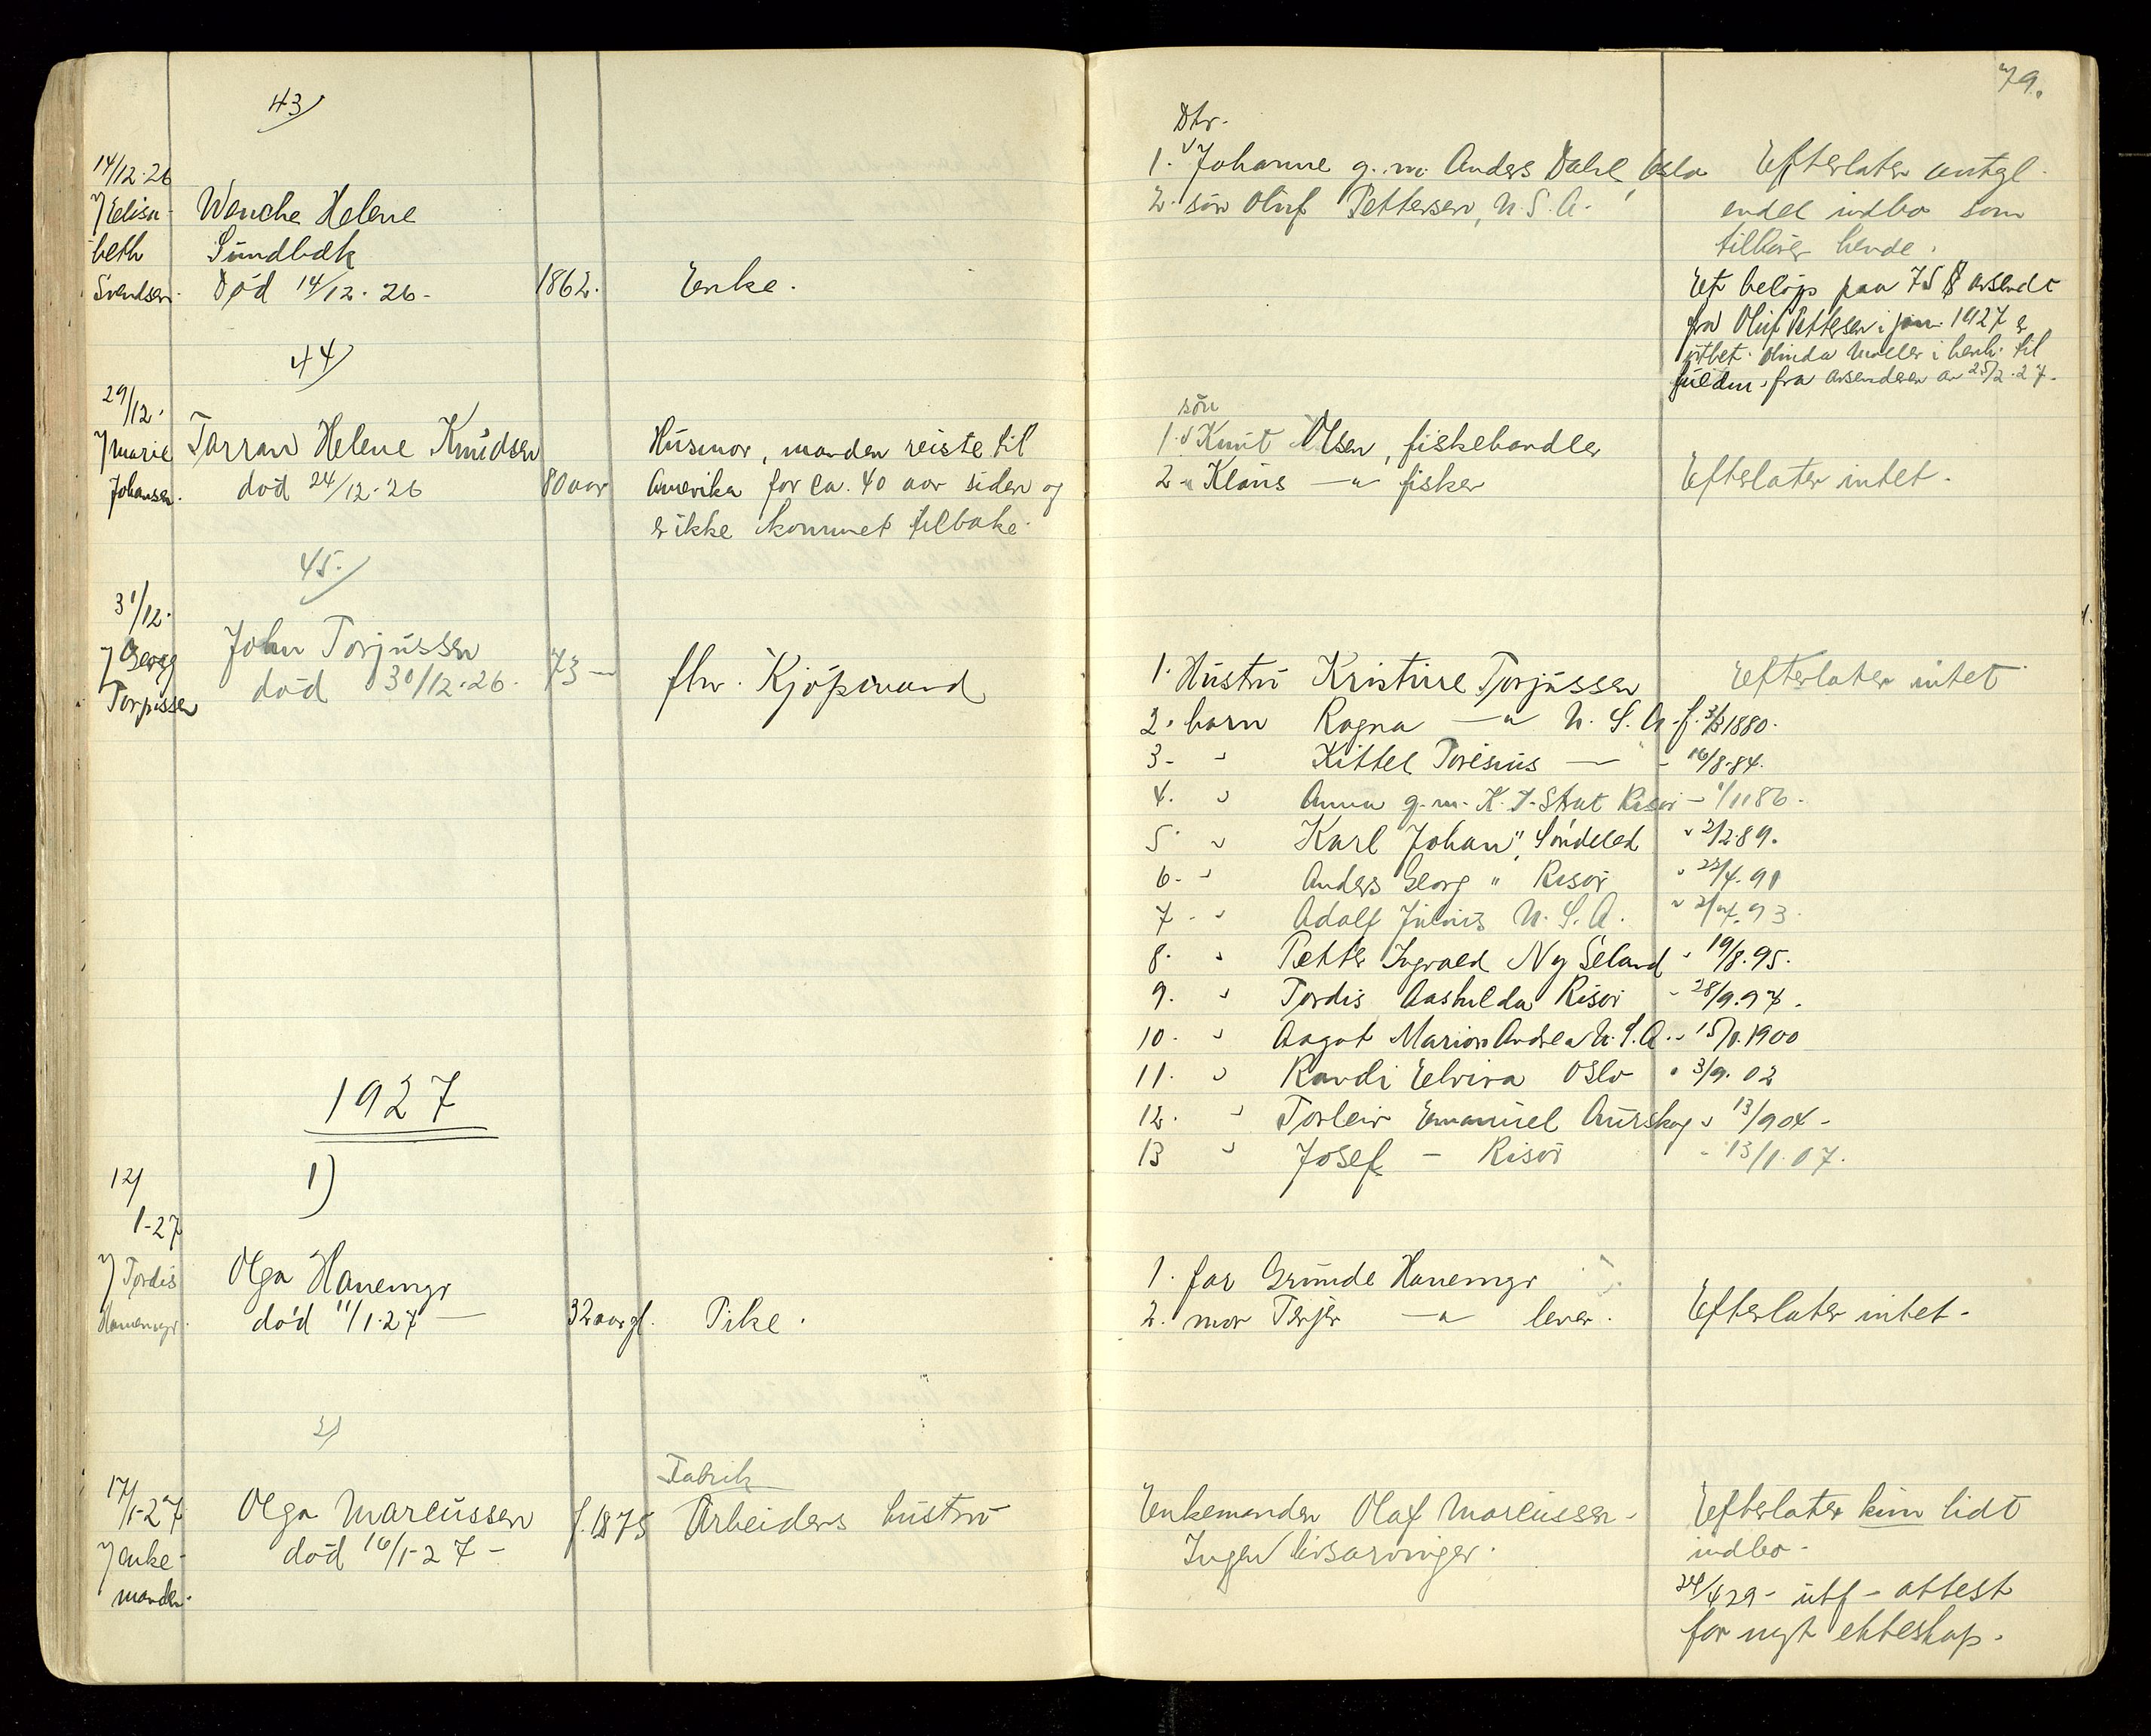 79.
43)
14/12.26
v/ Elisa-
beth
Svendsen.
Wenche Helene
Sundbæk
Død 14/12.26-
1862.
Enke.
Dtr.
1. Johanne g.m. Anders Dahl, Oslo
2. søn Oluf Pettersen, U.S.A.
Efterlater antgl.
endel indbo som
tilhører hende.
Et beløp paa 75 $ avsendt
fra Oluf Pettersen i jan. 1927 er
utbet. Olinda Møller i henh. til
fra avsenderen av 25/2.27.
44)
29/12.
v/ Marie
Johansen.
Helene Knudsen
død 24/12.26
80 aar
Husmor, manden reiste til
Amerika for ca. 40 aar siden og
er ikke kommet tilbake.
søn
1. Knut Olsen, fiskehandler
2. " Klaus —"— fisker
Efterlater intet.
45.)
31/12.
v/ Georg
Torjussen
John Torjussen
død 30/12.26.
73 —
fhv. Kjøpmand
1. Hustru Kristine Torjussen
Efterlater intet
2. barn Ragna —"— U.S.A. f. 1880.
3- " Kittel — - 16/8.84.
4. " Anna g.m. K. Risør - 1/11 86.
5. " Karl Johan ", Søndeled " 2/2 89.
6. " Anders Georg " Risør " 23/4.91
7. " Adolf Julius U.S.A. " 93.
8. " Petter Ingvald Ny Seland " 19/8.95.
9. " Tordis Aashilda Risør - 28/9.97.
10. " Aagot Marion Andrea U.S.A. 1900
11. " Randi Elvira Oslo " 3/9.02
12. " Torleiv Emanuel Aurskog " 13/9 04-
13 " Josef - Risør - 13/1.07.
1927
1)
12/
1-27
v/ Tordis
Hanemyr.
Olga Hanemyr
død 11/1.27 —
32 aar gl.
Pike.
1. far Grunde Hanemyr
2. mor —"— lever.
Efterlater intet-
2)
17/1-27
v/ enke-
manden.
Olga Marcussen
død 16/1-27-
f. 1875
Fabrik
Arbeiders hustru
Enkemanden Olaf Marcussen-
Ingen livsarvinger.
Efterlater kun lidt
indbo-
24/4 29- utf- attest
for nyt ekteskap.